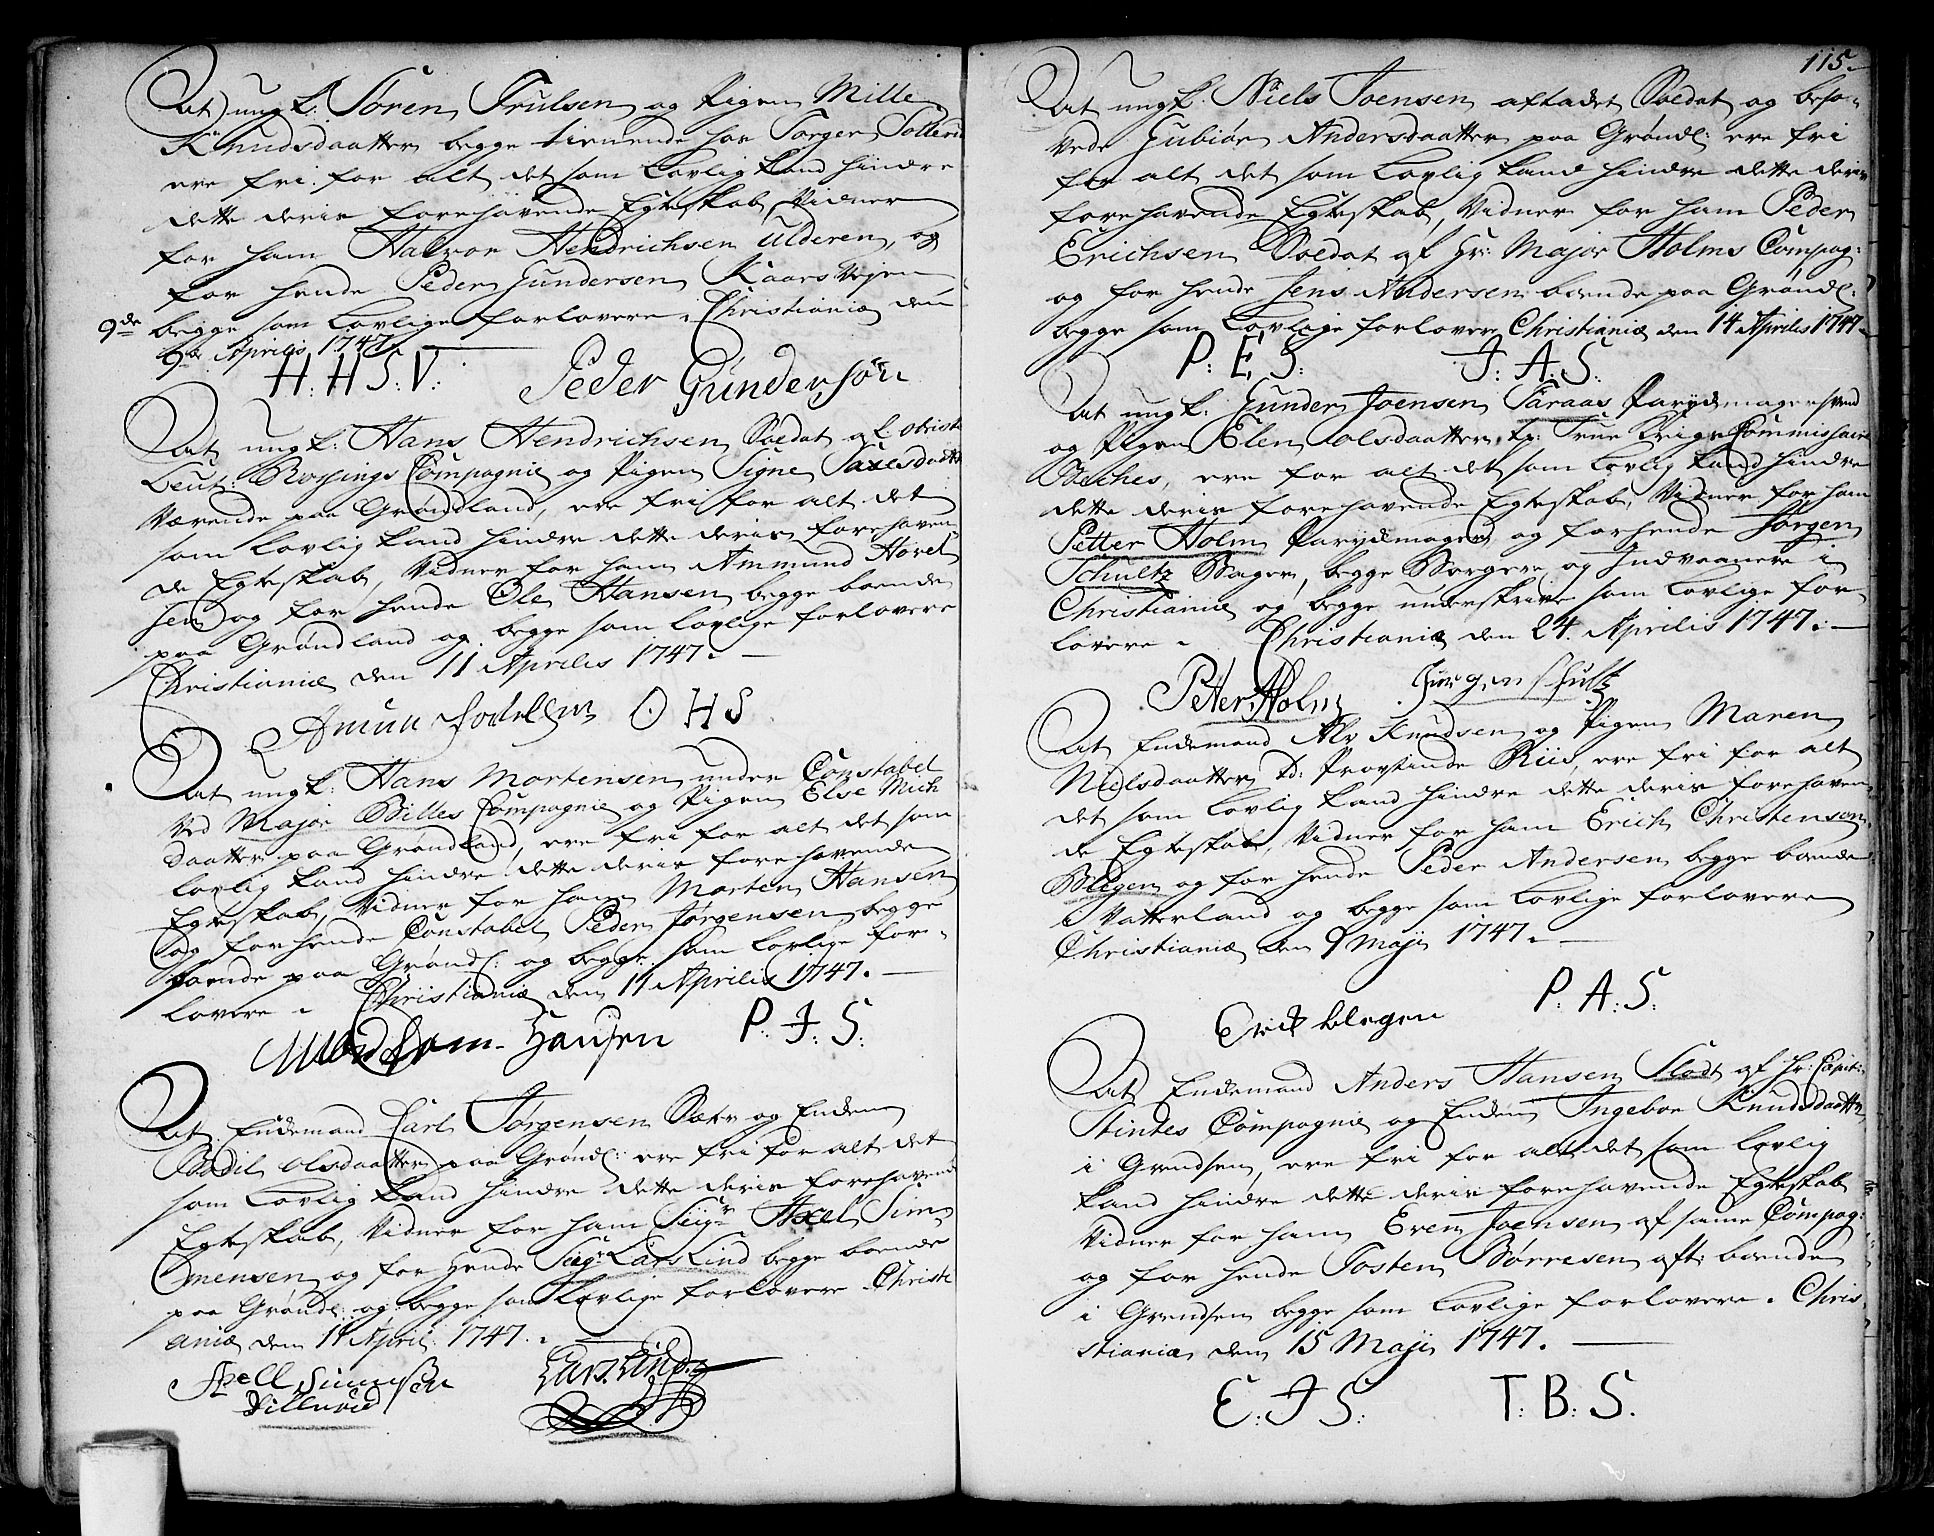 At ungk: Søren Trulsen og Pigen Mille
Knudsdaatter begge tienende hos Torger
ere fri for alt det som Lovlig kand hindre
dette deris forehavende Egteskab, Vidner
for ham Halvor Hendrichsen Ulderen, og
for hende Peder Gundersen Kaars Vejen
begge som Lovlige forlovere. Christianiæ den
9de
9de Aprilis 1747.
H: H S: V: Peder Gündersøn
At ungk: Hans Hendrichsen Soldat af Obrist
Leut: Rossings Compagnie og Pigen Signe Saxesdaatt
Værende paa Grøndland, ere fri for alt det
som Lovlig kand hindre dette deris forehaven
de Egteskab, Vidner for ham Ammund Hovel
sen og for hende Ole Hansen begge boende
paa Grøndland og begge som Lovlige forlovere
Christianiæ den 11 Aprilis 1747.
Amun O H S
At ungk: Hans Mortensen under Constabel
Ved Major Billes Compagnie og Pigen Else Mich
daatter paa Grøndland, ere fri for alt det som
Lovlig kand hindre dette deris forehavende
Egteskab, Vidner for ham Morten Hansen
og for hende Constabel Peder Jørgensen begge
boende paa Grøndl: og begge som Lovlige for-
lovere. Christianiæ den 11 Aprilis 1747.
Hansen P: J: S:
At Enckemand Carl Jørgensen Sætr og Encken
Bodil Olsdaatter paa Grøndl: ere fri for alt det
som Lovlig kand hindre dette deris forehavend
Egteskab, Vidner for ham Sigr Axel Sim
mensen og for hende Sigr Lars Lind begge boende
paa Grøndl: og begge som Lovlige forlovere Christi
aniæ den 11 April. 1747.
Axell Simensen Lars Lind
115.
At ungk. Niels Joensen aftadet Soldat og beso-
vede Gubiør Andersdaatter paa Grøndl: ere fri
for alt det som Lovlig kand hindre dette deris
forehavende Egteskab, Vidner for ham Peder
Erichsen Soldat af Hr: Major Holms Compag:
og for hende Jens Andersen boende paa Grøndl:
begge som Lovlige forlovere Christianiæ den 14 Aprilis 1747.
P: E. S: J: A: S:
At ungk: Gunder Joensen Saraas Parydsmagersvend
og Pigen Elen Olsdaatter, Frue Krigs Commissaire
ere for alt det som Lovlig kand hindre
dette deris forehavende Egteskab, Vidner for ham
Petter Holm Parydsmager og for hende Jørgen
Schultz Bager, begge Borgere og Indvaanere i
Christianiæ og begge underskrive som Lovlige for-
lovere. Christianiæ den 24. Aprilis 1747.
Peter Holm Jürgen Schultz
At Enckemand Alv Knudsen og Pigen Maren
Nielsdaatter Provstinde Riis, ere fri for alt
det som Lovlig kand hindre dette deris forehaven
de Egteskab, Vidner for ham Erich Christensen
Blegen og for hende Peder Andersen begge boende
i Vatterland og begge som Lovlige forlovere
Christianiæ den 9 Maji 1747.
Erick blegen P: A: S:
At Enckemand Anders Hansen Flodt af Hr: Capit:
Stintes Compagnie og Encken Ingebor Knudsdaatter
i Grendsen, ere fri for alt det som Lovlig
kand hindre dette deris forehavende Egteskab
Vidner for ham Even Joensen af samme Compag:
og for hende Tosten Børresen aft: boende
i Grendsen begge som Lovlige forlovere. Chris-
tiania den 15 Maji 1747.
E: J S: T: B: S.